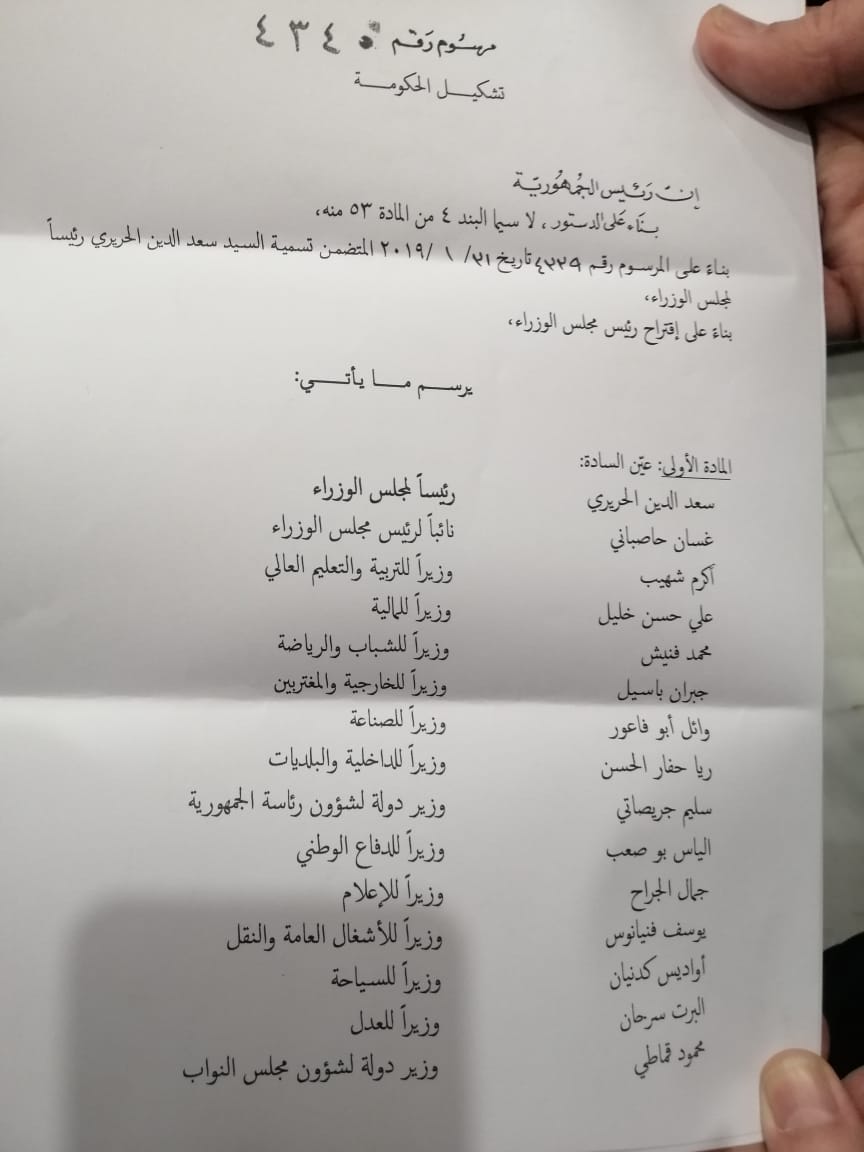 مرسوم رقم ٤٣٤٠
تشكيل الحكومة
إن رئيس الجمهورية
بناء على الدستور، لا سيما البند ٤ من المادة ٥٣ منه،
بناءً على المرسوم رقم ٤٣٣٩ تاريخ ٣١/ ١ /٢٠١٩ المتضمن تسمية السيد سعد الدين الحريري رئيساً
لمجلس الوزراء،
بناءً على إقتراح رئيس مجلس الوزراء،
يرسم ما يأتي:
المادة الأولى: عيّن السادة:
سعد الدين الحريري رئيساً لمجلس الوزراء
غسان حاصباني نائباً لرئيس مجلس الوزراء
أكرم شهيب وزيراً للتربية والتعليم العالي
علي حسن خليل وزيراً للمالية
محمد فنيش وزيراً للشباب والرياضة
جبران باسيل وزيراً للخارجية والمغتربين
وائل أبو فاعور وزيراً للصناعة
ريا حفار الحسن وزيراً للداخلية والبلديات
سليم جريصاتي وزير دولة لشؤون رئاسة الجمهورية
الياس بو صعب وزيراً للدفاع الوطني
جمال الجراح وزيراً للإعلام
يوسف فنيانوس وزيراً للأشغال العامة والنقل
أواديس كدنيان وزيراً للسياحة
البرت سرحان وزيراً للعدل
محمود قماطي وزير دولة لشؤون مجلس النواب